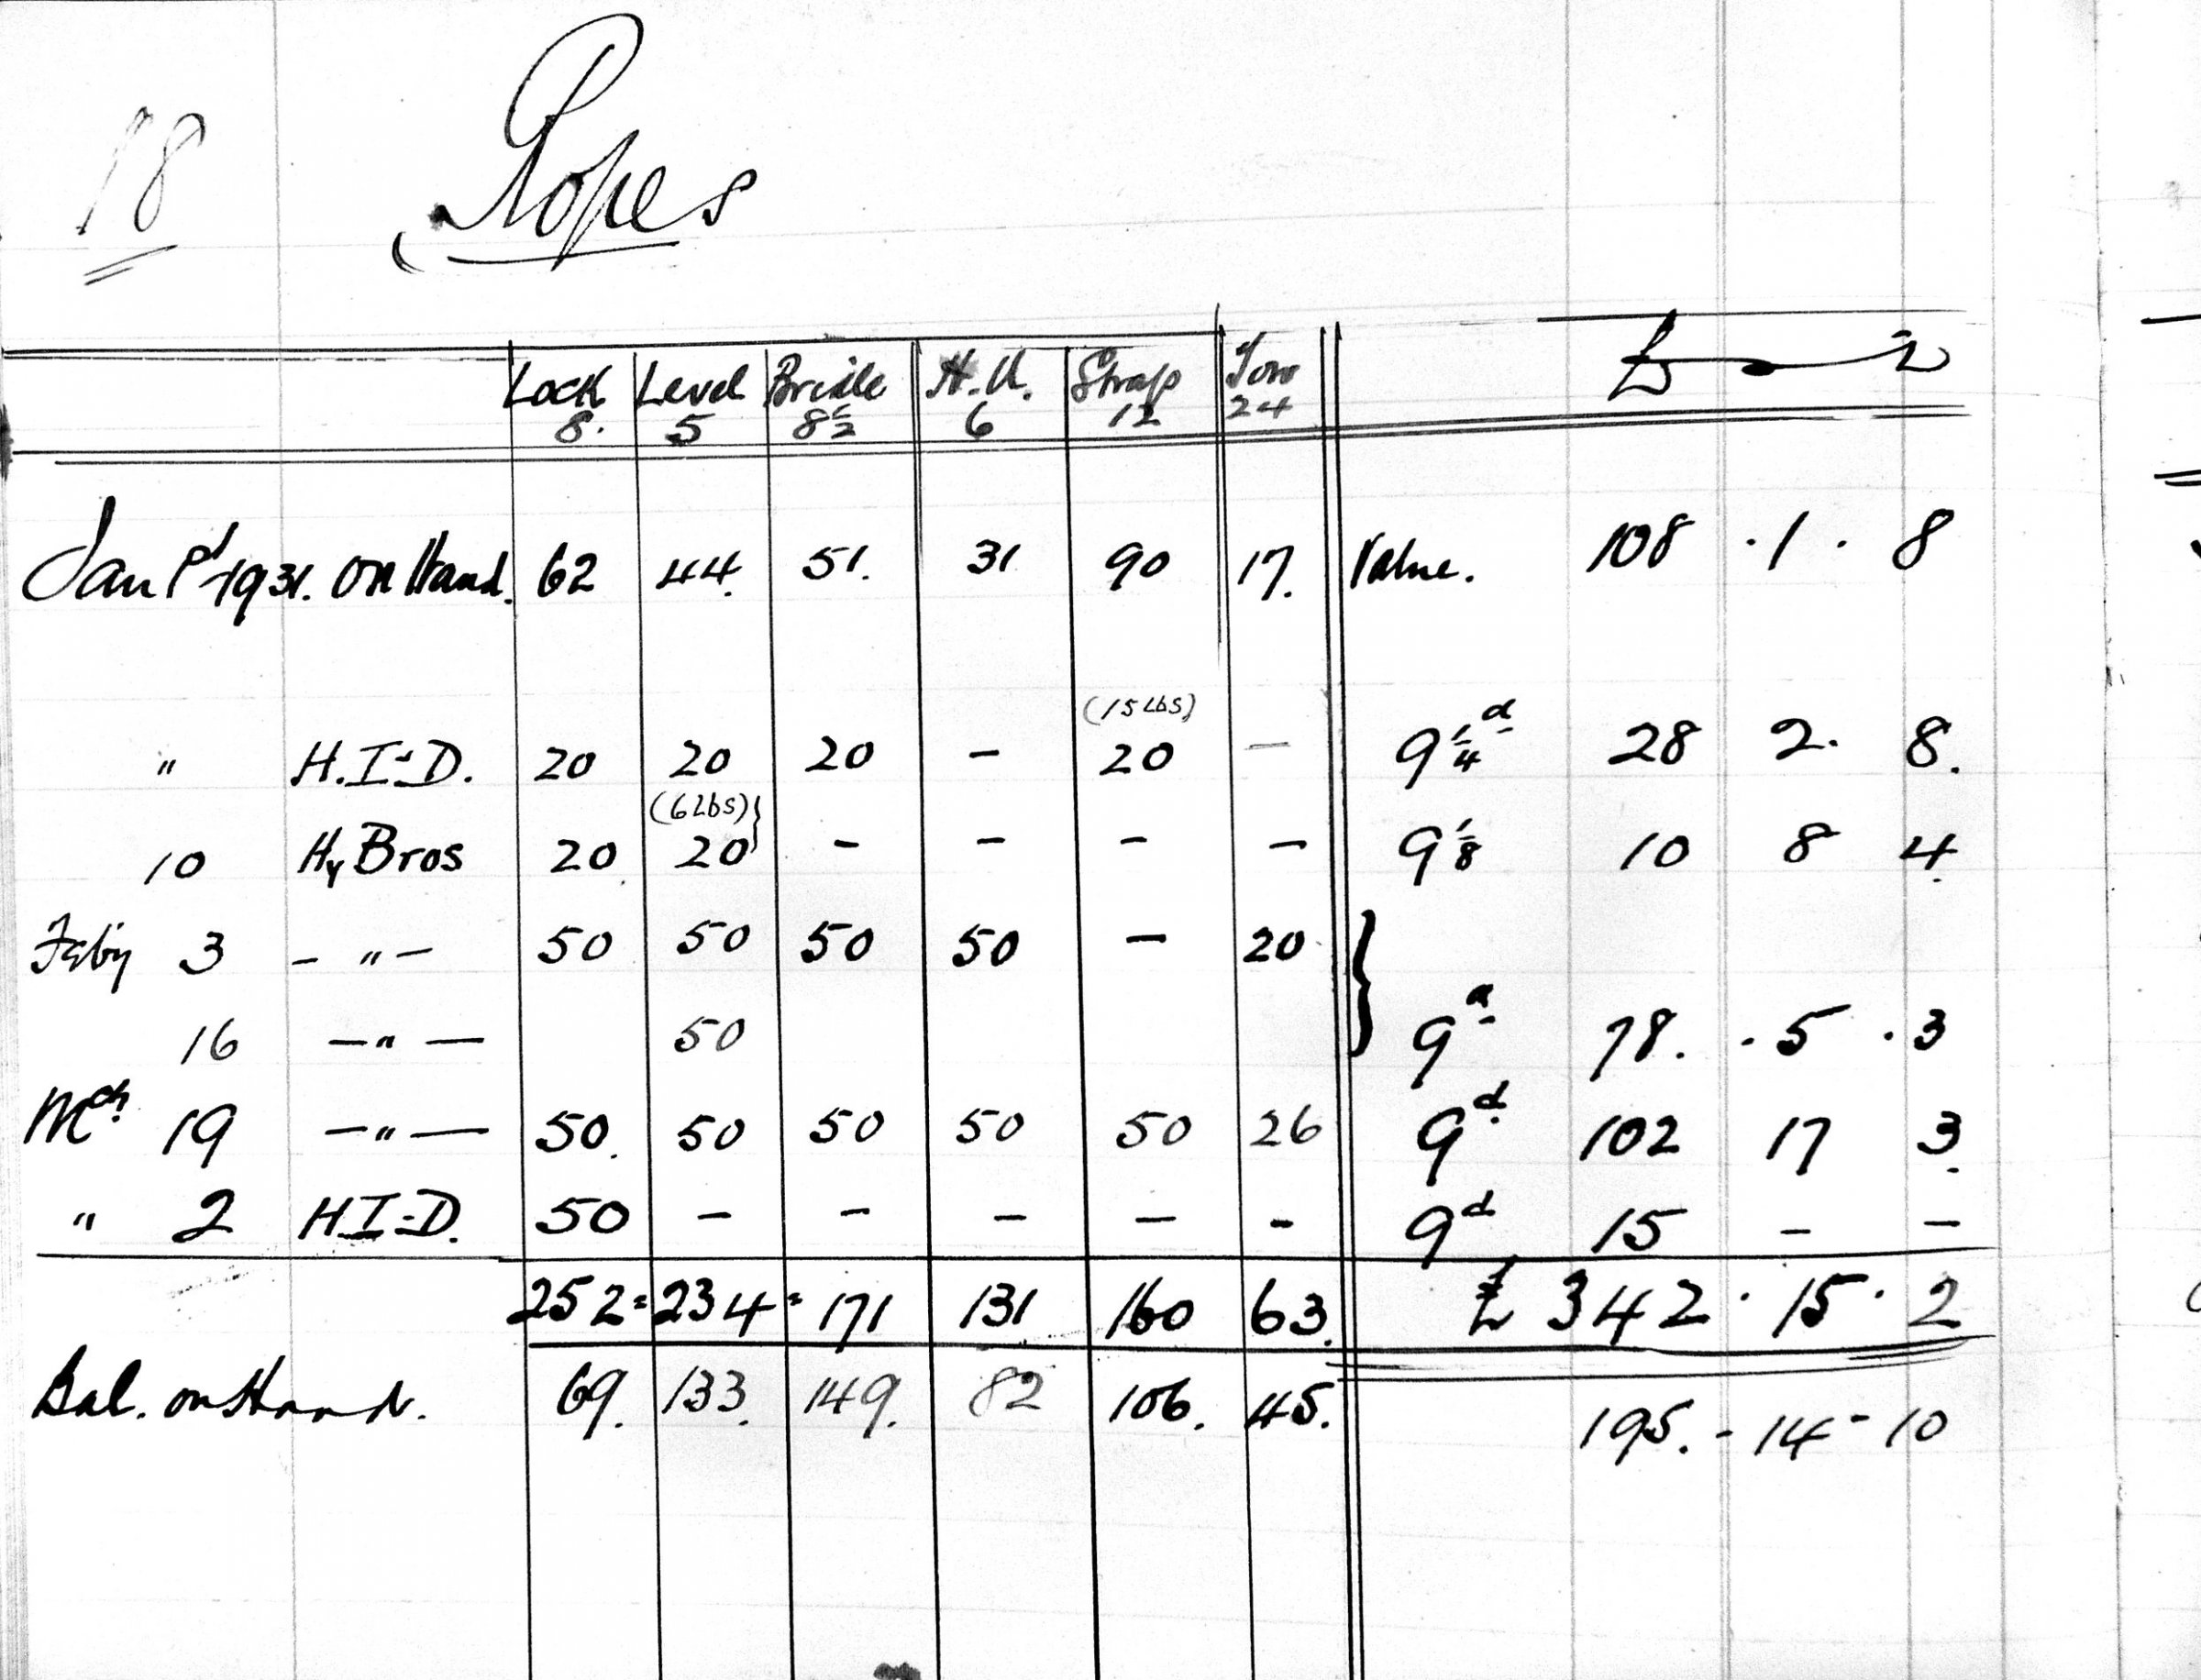 18
Ropes
Lock Level Bridle H.U. Strap Tow £
8. 5 8½ 6 12 24
Jan 1st 1931. On Hand. 62 44. 51. 31 90 17. Value. 108 . 1 . 8
(15 Lbs)
" H.I-D. 20 20 20 - 20 - 9¼d 28 2. 8.
(6 Lbs)
10 Hy Bros 20 20 - - - - 9⅛ 10 8 4.
Feby 3 - " - 50 50 50 50 - 20
16 - " - 50 9d 78. . 5 . 3
Mch 19 - " - 50. 50 50 50 50 26 9d 102 17 3.
" 2 H.I-D. 50 - - - - - 9d 15 - -
252 = 234 = 171 131 160 63. £ 342 . 15 . 2
Bal. on Hand. 69. 133. 149. 82 106. 45. 195. - 14 - 10